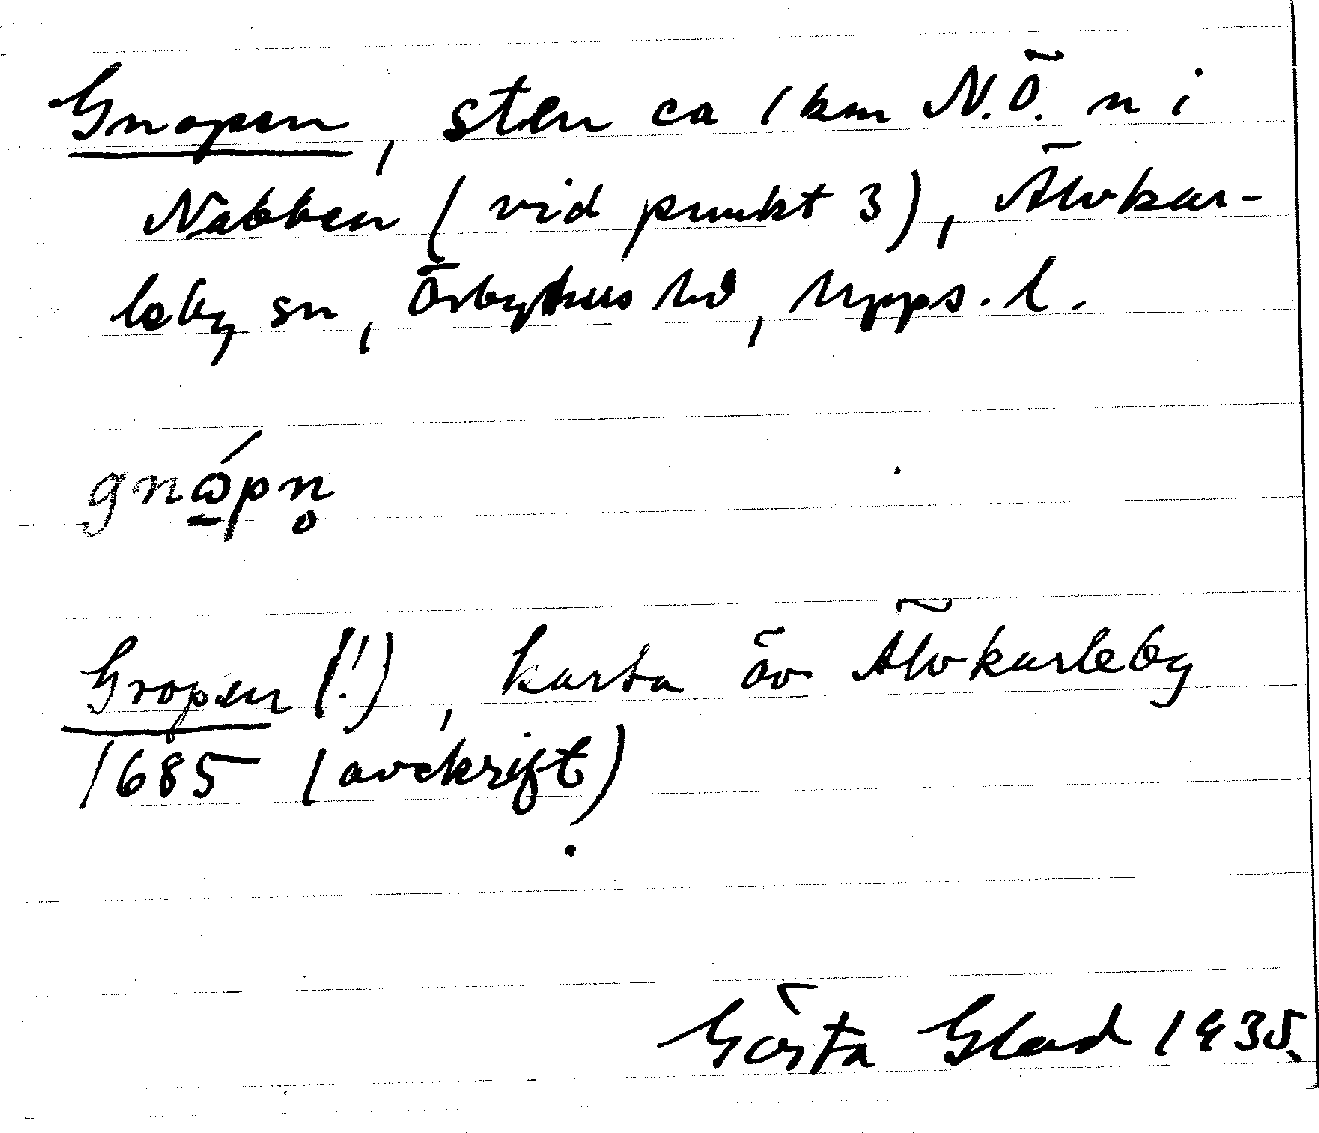 Gnopen, sten ca 1 km N.Ö. n i
Nabben (vid punkt 3), Älvkar-
leby sn, Örbyhus hd, Upps. l.
gnǫ́pn̥
Gropen (!), karta öv Älvkarleby
1685 (avskrift)
Gösta Glad 1935.